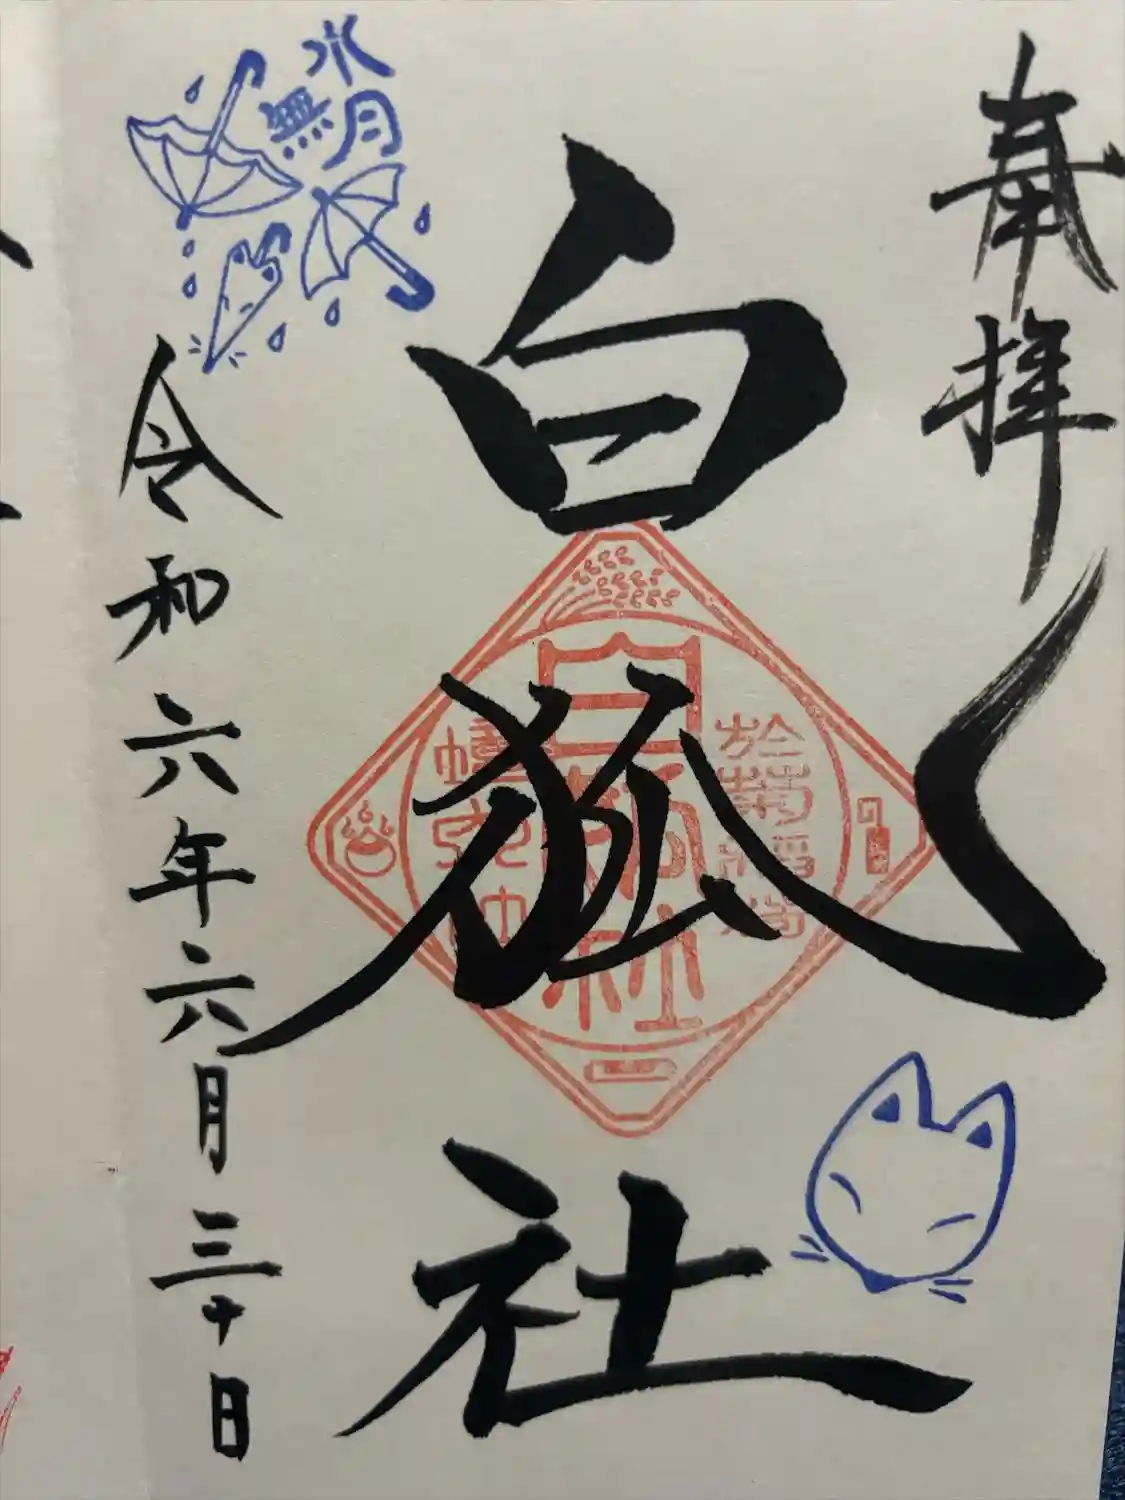 奉拝
白狐社
白狐社
令和六年六月三十日
水無月